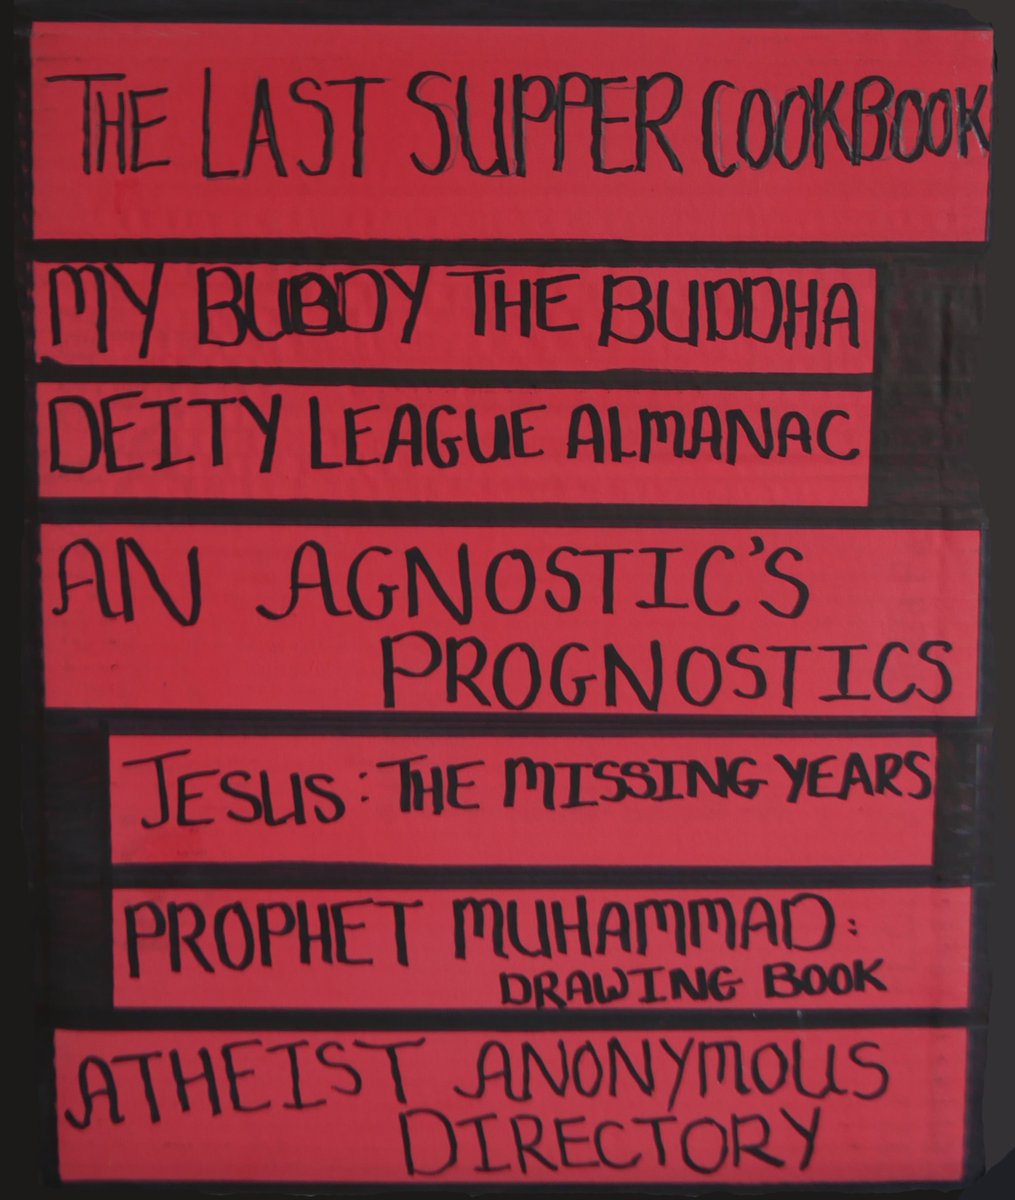 THE LAST SUPPER COOKBOOK
MY BUDDY THE BUDDHA
DEITY LEAGUE ALMANAC
AN AGNOSTIC'S
PROGNOSTICS
JESUS: THE MISSING YEARS
PROPHET MUHAMMAD:
DRAWING BOOK
ATHEIST ANONYMOUS
DIRECTORY